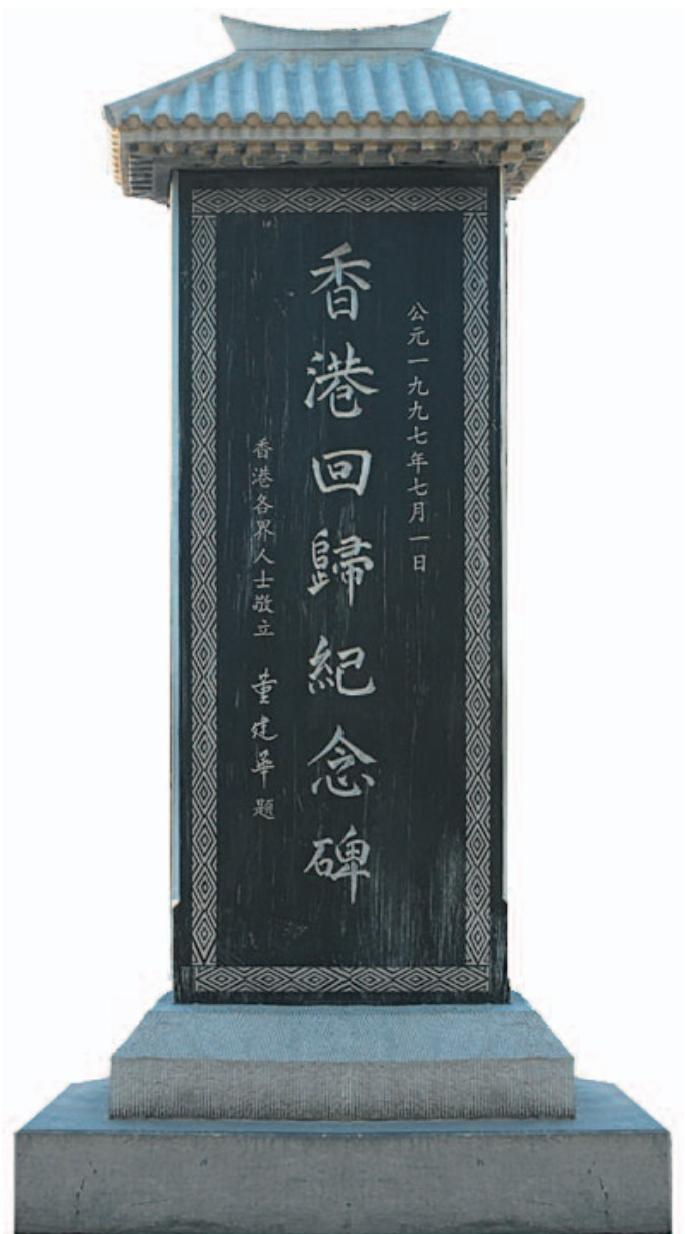 公元一九九七年七月一日
香港回歸紀念碑
香港各界人士敬立 董建華題